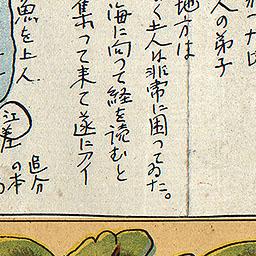 人の弟子
地方は
く夫人は非常に困ってゐた。
海に向って経を読むと
集って来て遂にアイ
魚を上人
江差
追分
の本